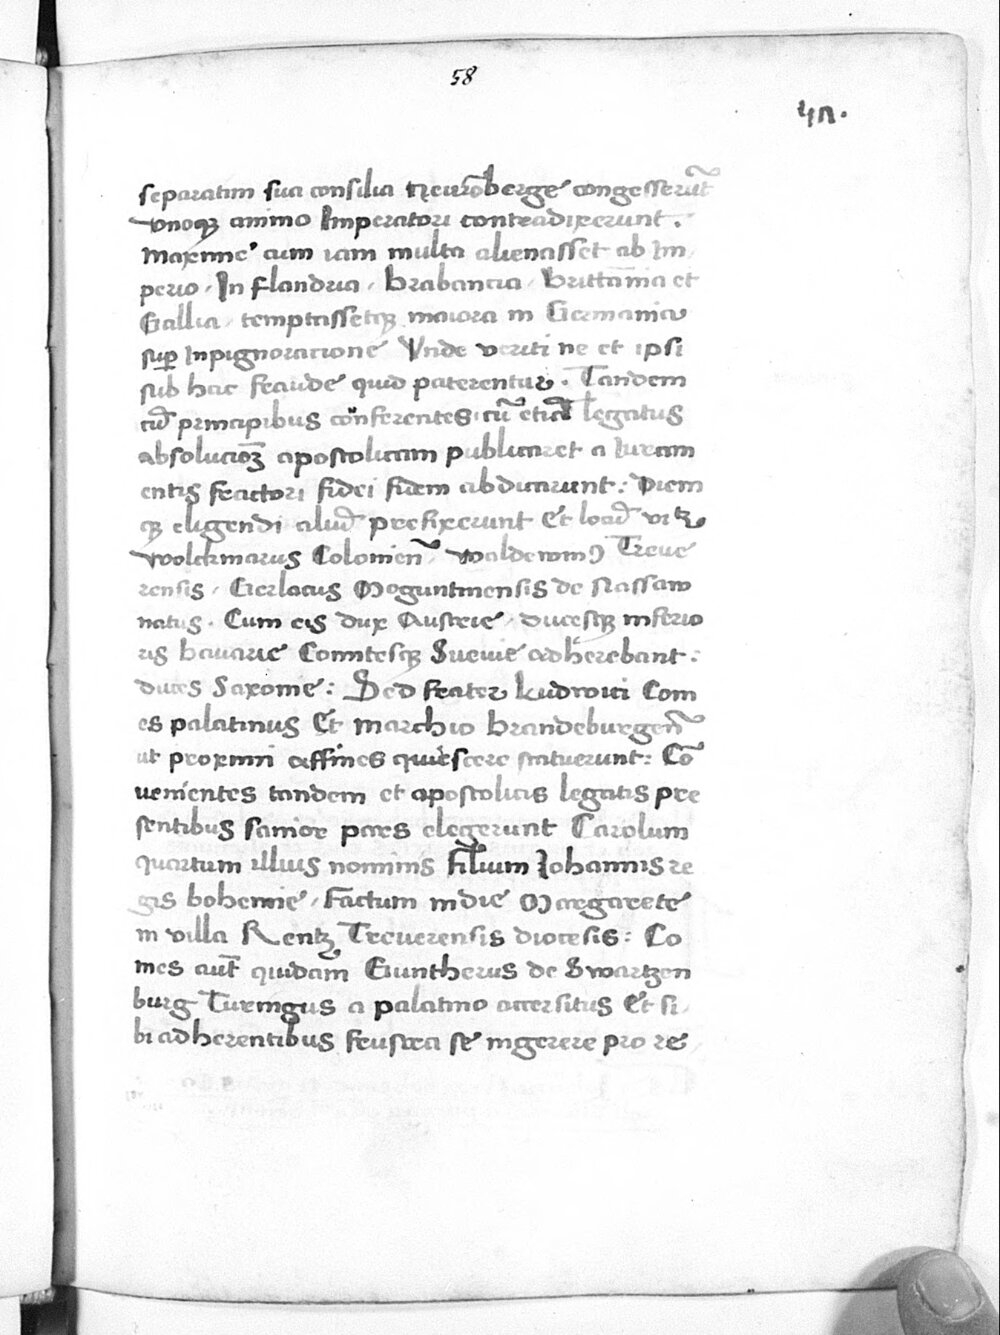 58
separatim sua consilia congesserūt
vnoqꝫ animo Imperatori contradixerunt.
Maxime cum iam multa alienasset ab Im
perio / In flandria / brabancia / brittānia et
Gallia / temptassetqꝫ maiora in Germania
suꝑ Inpignoracione Vnde veriti ne et ipsi
sub hac fraude quid paterentur. Tandem
cū principibus cōferentes cū legatus
absolucioēꝫ apostolicam publicaret a Iuram
entis fractori fidei fidem abdicarunt: Diem
qꝫ eligendi aliud prefixerunt Et
wolckmarus Coloniensꝰ waldewinꝰ Treue
rensis / Gerlacus Moguntinensis de Nassaw
natus. Cum eis dux Austrie / ducesqꝫ inferio
ris bauarie Comitesqꝫ Sueuie adherebant:
duces Saxonie: Sed frater Ludwici Com
es palatinus Et Marchio brandeburgenꝰ
ut proximi affines quiescere statuerunt: Cō
uenientes tandem et apostolicis legatis pre
sentibus sanior pars elegerunt Carolum
quartum illius nominis filium Johannis re
gis bohemie / Factum in die Margarete
in villa Rentz Treuerensis diocesis: Co
mes aut̄ quidam Guntherus de Swartzen
burg Turingus a palatino accersitus Et si
bi adherentibus frustra se ingerere pro re